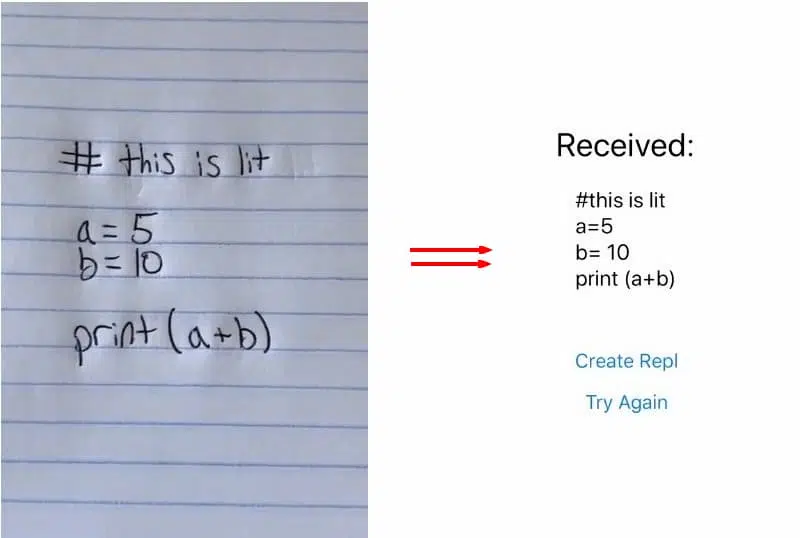 # this is lit
a = 5
b = 10
print (a+b)
Received:
#this is lit
a=5
b= 10
print (a+b)
Create Repl
Try Again